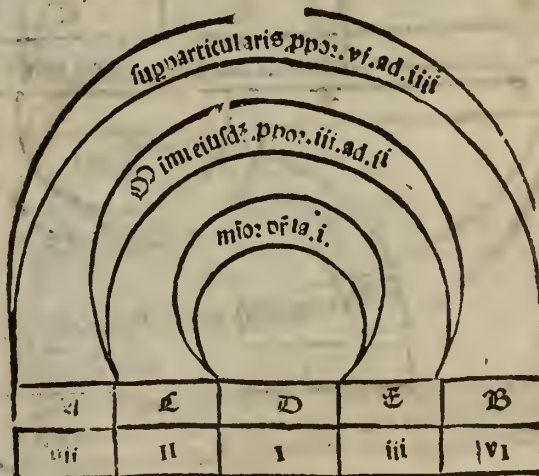 supparticularis.ppor.vi.ad.iiii
Mimi eiusdē.ppor.iii.ad.ii
.i.
A C D E B
iiii II I iii VI